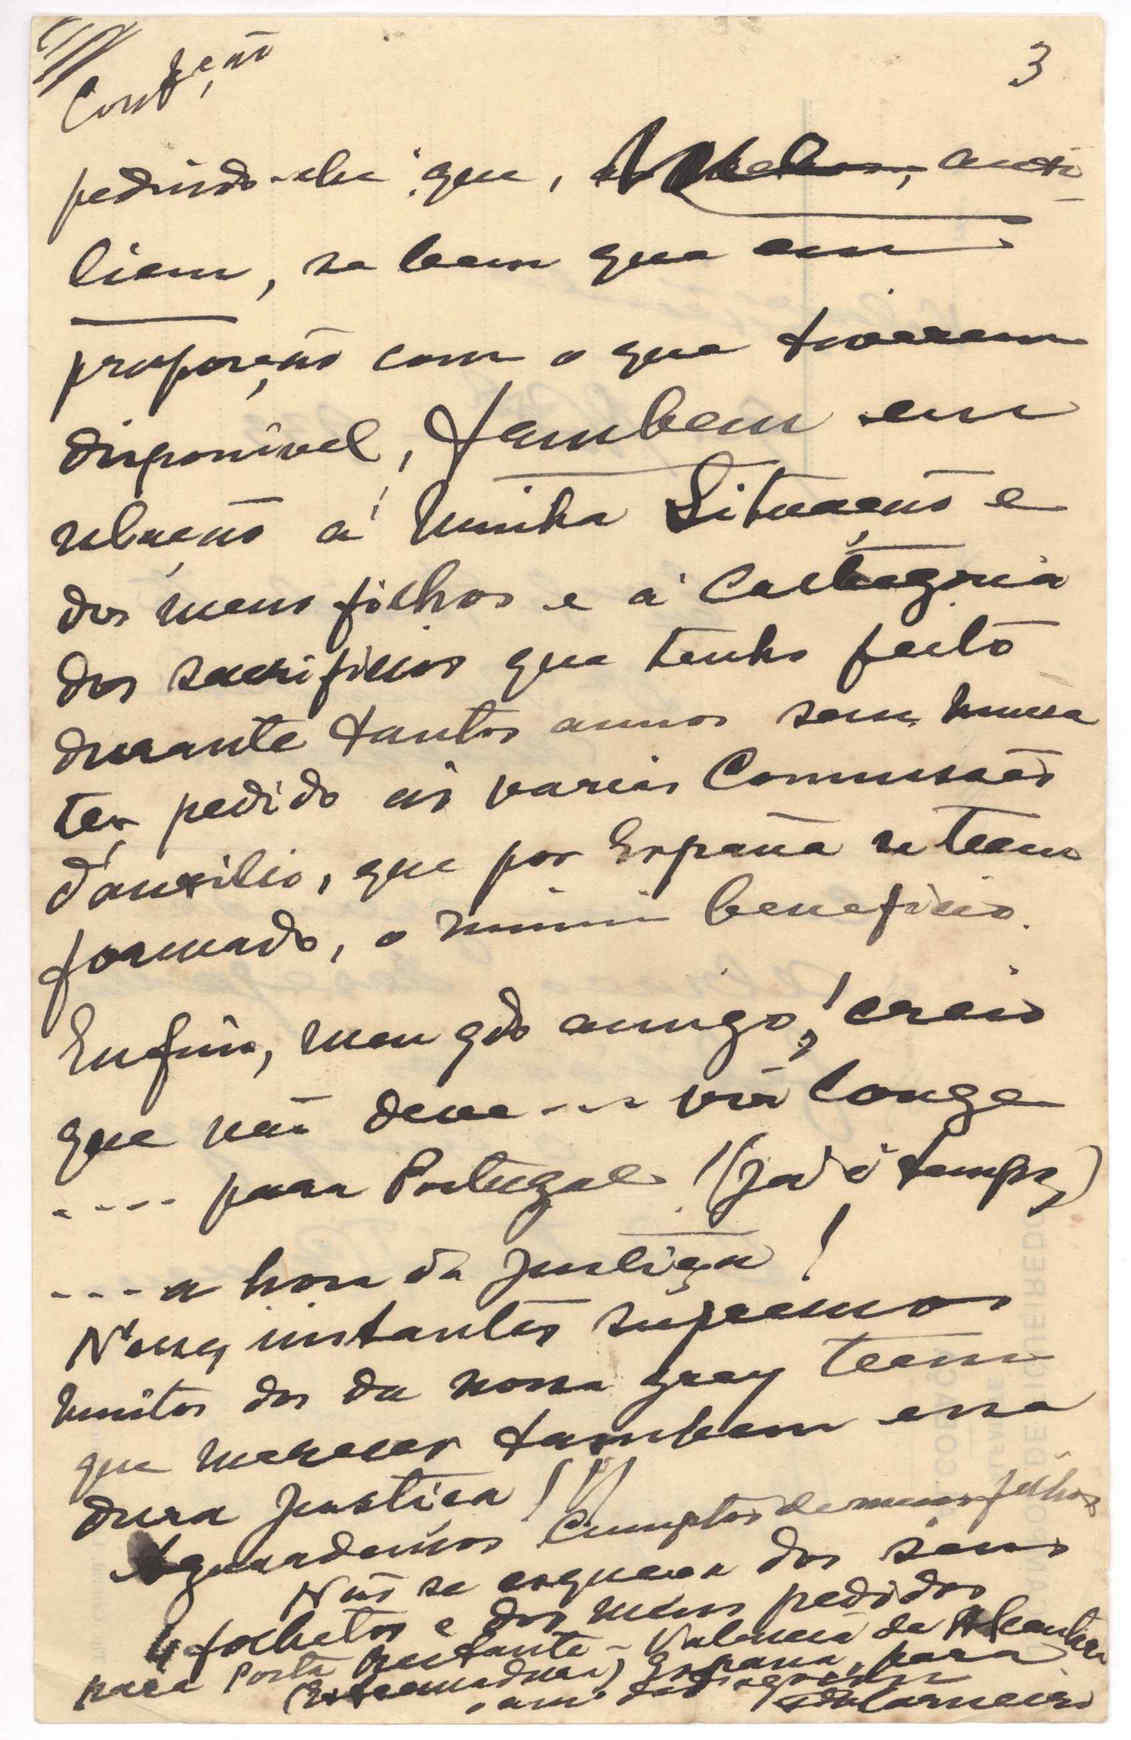 3
pedindo-lhe que, auxi-
liem, se bem que em
proporção com o que tiverem
disponivel, tambem em
relação á minha situação e
dos meus filhos e á cathegoria
dos sacrificios que tenho feito
durante tantos annos sem nunca
ter pedido ás varias Commissões
d'auxilio, que por España se teem
formado, o minimo beneficio.
Enfim, meu qdo amigo! creio
que não deve --- vir longe
---- para Portugal! (já é tempo)
--- a hora da Justiça!
N'esses instantes supremos
muitos dos da nossa grey teem
que merecer tambem essa
dura Justiça!!!
Aguardemos Cumptos de meus filhos
Não se esqueça dos seus
4 folhetos e dos meus pedidos
para Posta Restante - Valencia de Alcantara
(Extremadura) España, para
Carneiro